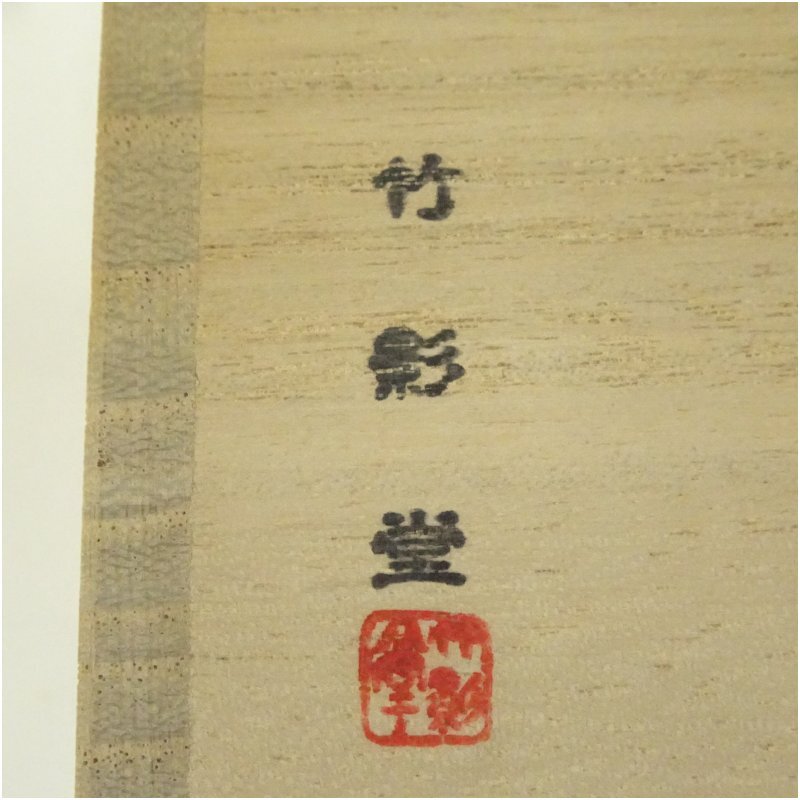 竹影堂
竹影堂